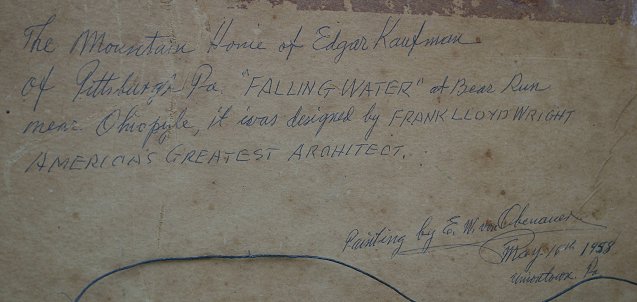 The Mountain Home of Edgar Kaufman
of Pittsburgh Pa. "FALLING WATER" at Bear Run
near Ohiopyle, it was designed by FRANK LLOYD WRIGHT
AMERICA'S GREATEST ARCHITECT.
Painting by E. W. von Obenauer
May 16th 1958
Uniontown, Pa